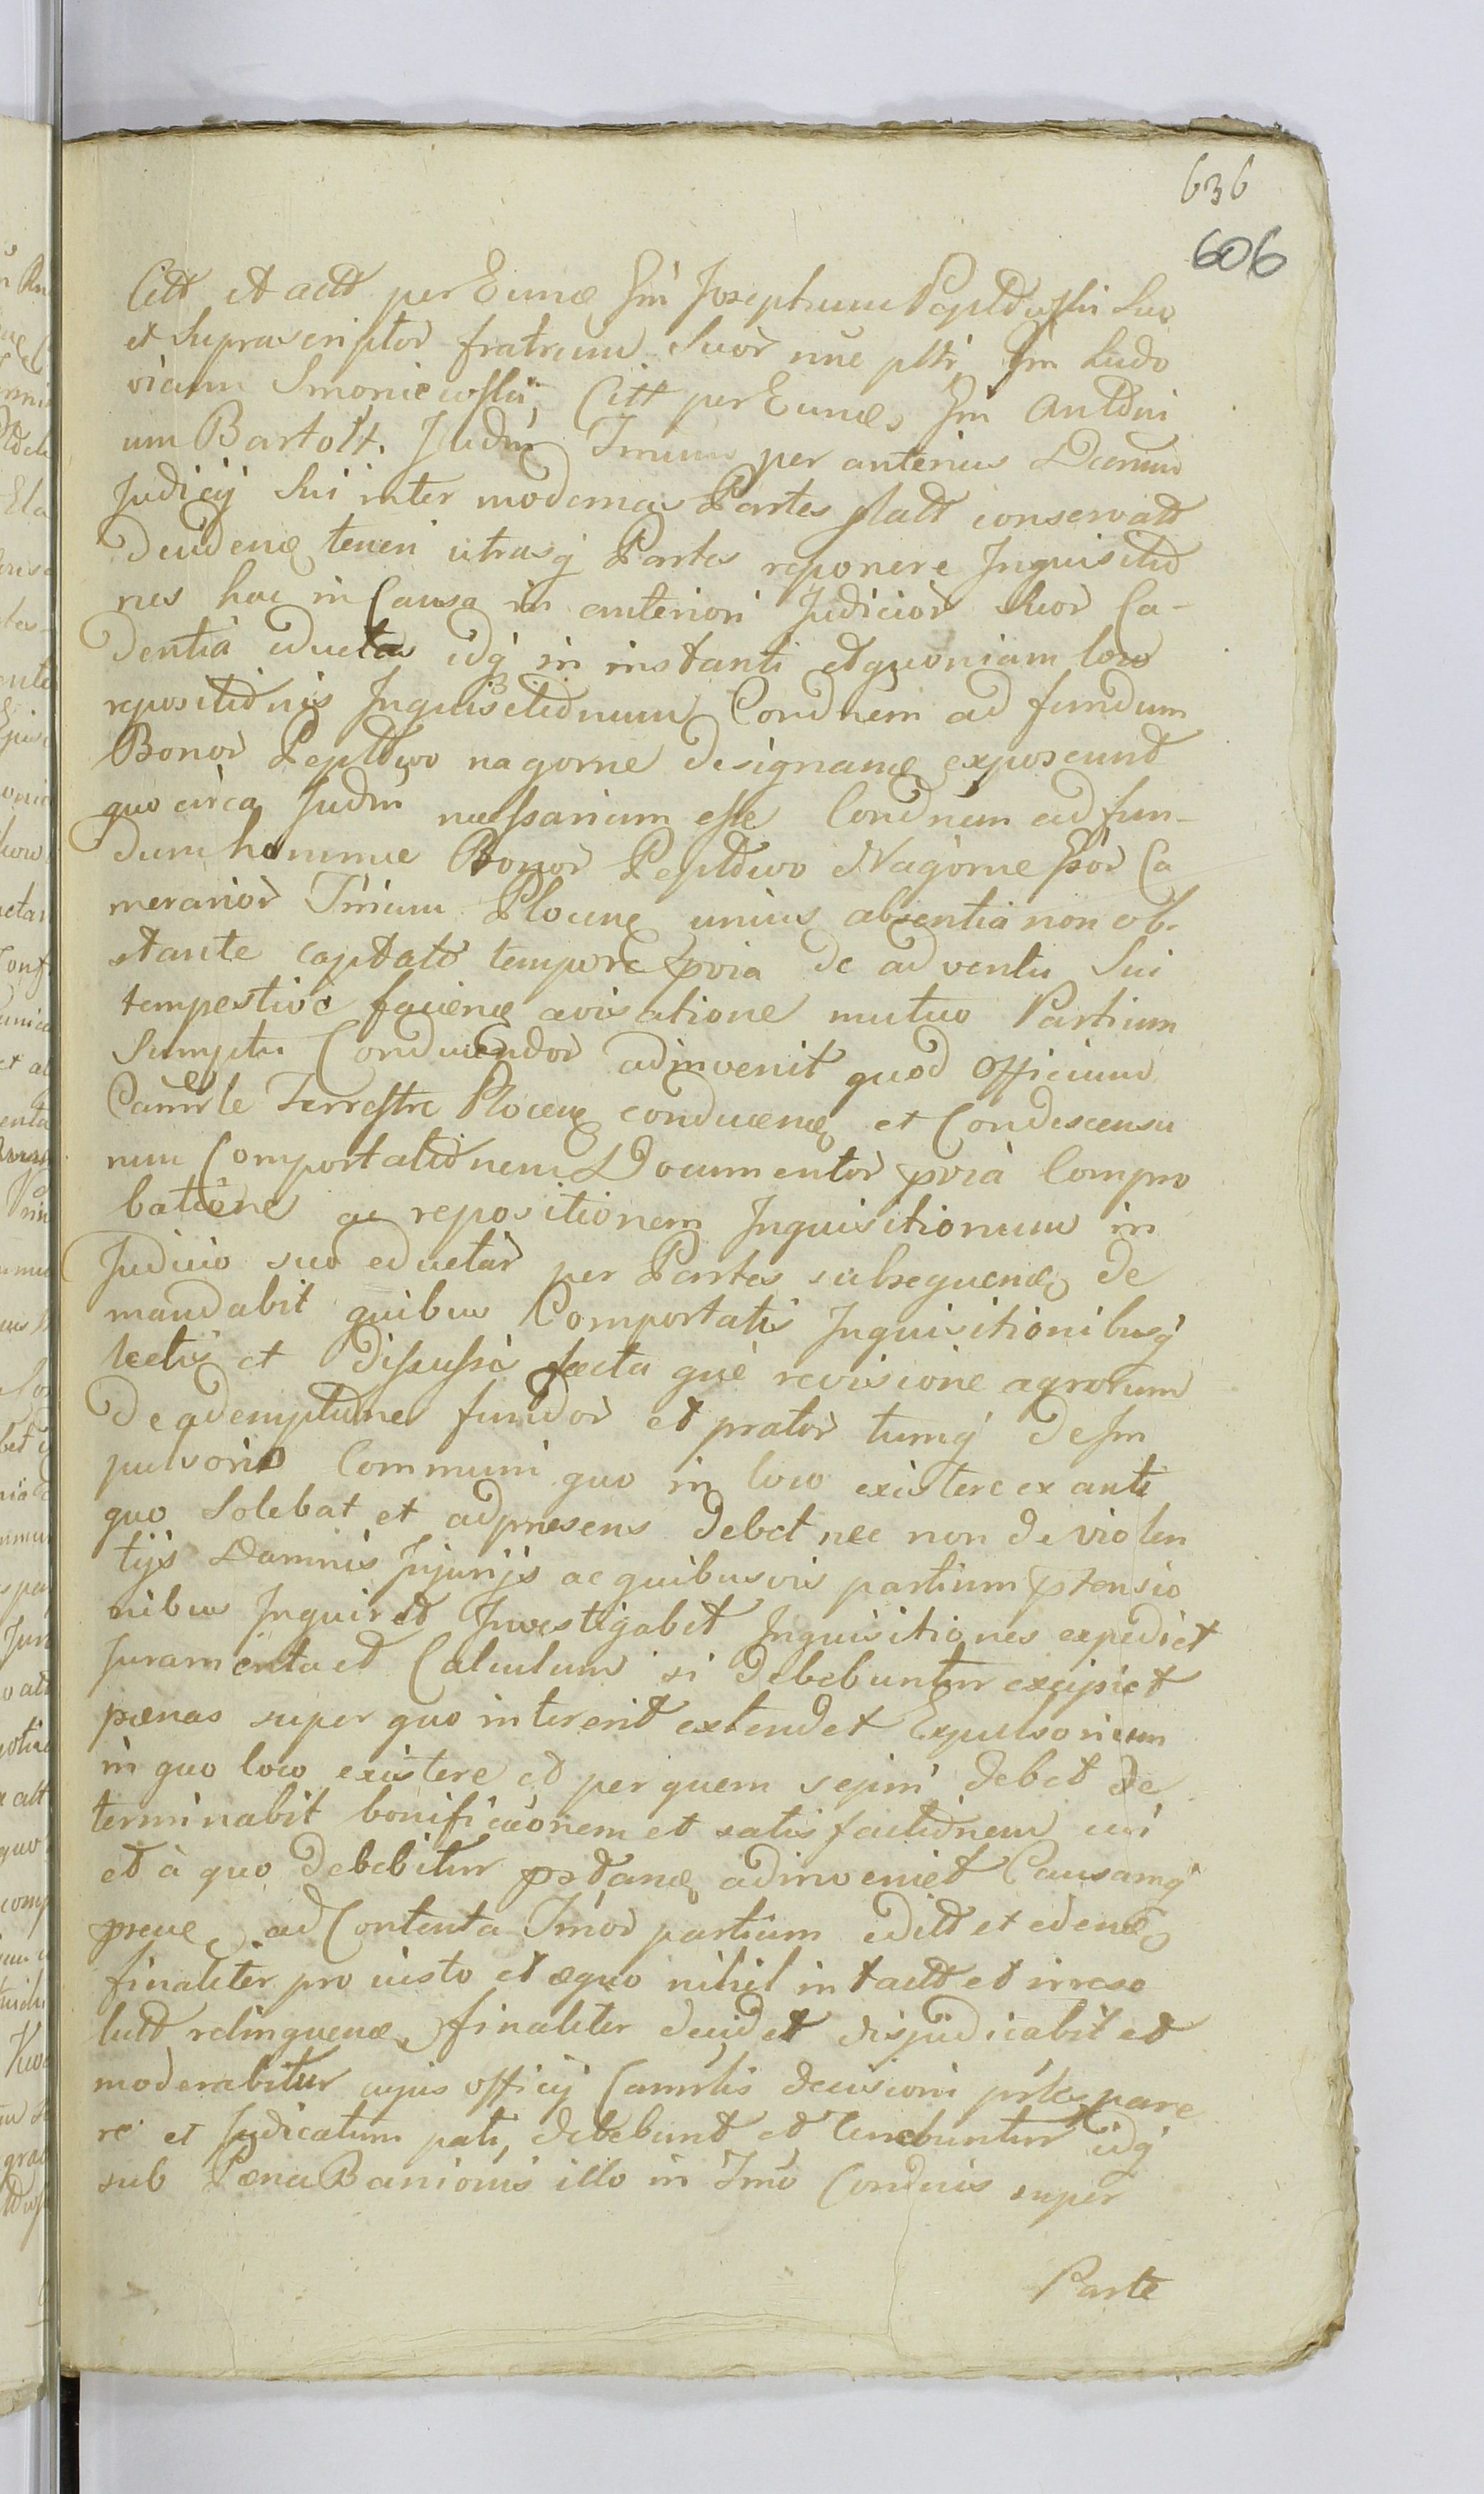 636
606
Citt et actt per Eundē Gm Josephum Pęplowski Suo
et Suprascriptor fratrum Suor nne pltr, Gm Ludo
vicum Smoniewski, Citt per Eundē, Gm Antoni
um Bartołt. Judm Trmm per anterius Decrum
Judicij Sui inter modernas Partes latt conservatt
Decidenē teneri utrasq Partes reponere Inquisitio
nes hac in Causa in anteriori Judicior Suor Ca-
dentia eductas idq in instanti et quoniam loco
repositionis Inquisitionum Condnem ad fundum
Bonor Pęplowo nagorne designandē exposcunt
quo circa Judm necessarium esse Condnem ad fun-
dum homnue Bonor Peplowo Nagorne Gsor Ca
merarior Trrium Plocenē unius absentia non ob-
stante captato tempore pvia de adventu Sui
tempestive faciendē avisatione mutuo Partium
Sumptu Conducendor adinvenit quod Officium
Camrle Terrestre Plocenē conducendē et Condescensu
rum Comportationem Documentor pvia Compro
batione ac repositionem Inquisitionum in
Judicio suo eductar per Partes subsequendē de
mandabit quibus Comportatis Inquisitionibusq
lectis et discussis facta que revisione agrorum
de ademptione fundor et prator tumq de Im
pulsorio Communi quo in loco existere ex anti
quo Solebat et adpræsens debet nec non de violen
tijs Damnis Injurijs ac quibusvis partium ptensio
nibus Inquiret Investigabit Inquisitiones expediet
Juramenta et Calculum si debebuntur excipiet
pœnas super quo intererit extendet Expulsorium
in quo loco existere et per quem sepiri debet de
terminabit bonificaonem et satisfactionem cui
et à quo debebitur pstandē adinveniet Causamq
pñe ad Contenta Trmor partium editt et edendē
finaliter pro iusto et æquo nihil intactt et irreso
lutt relinquendē finaliter decidet disjudicabit et
moderabitur cujus officij Camrlis decisioni ptes pare
re et Judicatum pati, debebunt et tenebuntur idq
sub Pœna Banionis illo in Trmo Condnis super
Parte